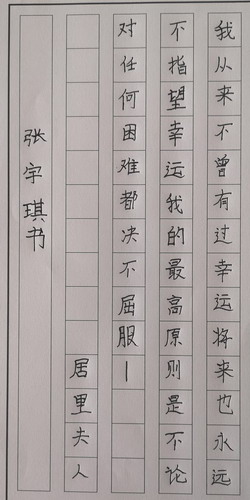 我从来不曾有过幸运将来也永远
不指望幸运我的最高原则是不论
对任何困难都决不屈服—
居里夫人
张宇琪书